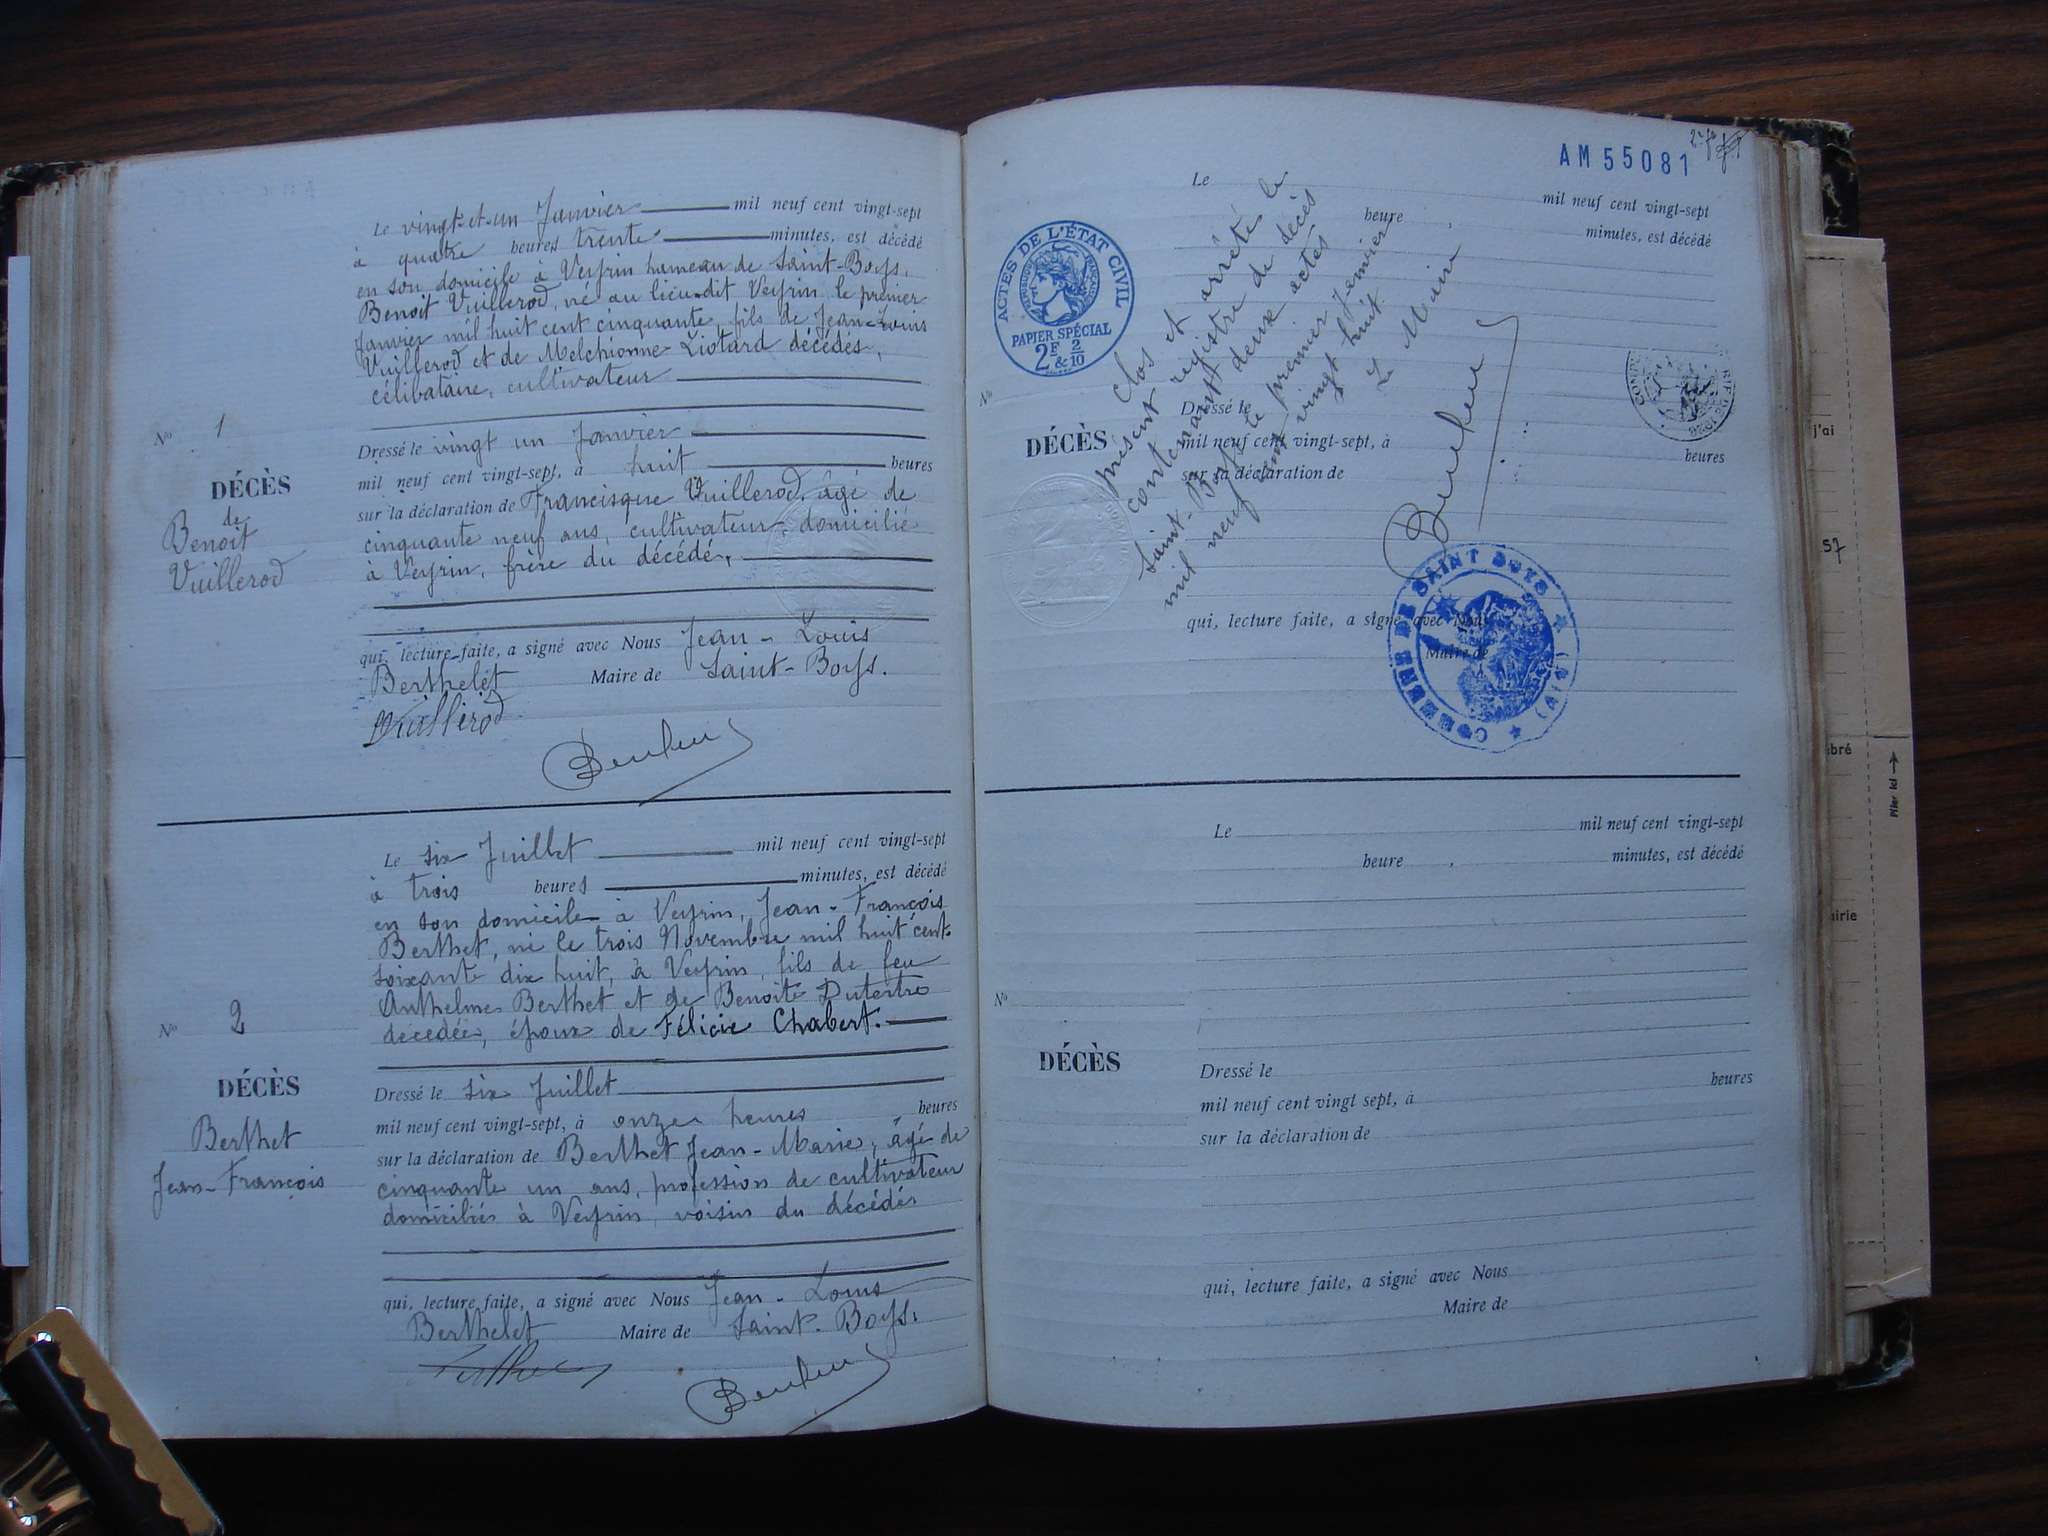 Le vingt-et-un Janvier mil neuf cent vingt-sept
à quatre heures trente minutes, est décédé
en son domicile à Veyrin hameau de Saint-Boys,
Benoit Vuillerod, né au lieu-dit Veyrin le premier
Janvier mil huit cent cinquante fils de Jean-Louis
Vuillerod et de Melchionne Liotard décédés,
célibataire, cultivateur
No 1
DÉCÈS
de
Benoit
Vuillerod
Dressé le vingt un Janvier
mil neuf cent vingt-sept, à huit heures
sur la déclaration de Francisque Vuillerod, âgé de
cinquante neuf ans, cultivateur, domicilié
à Veyrin, frère du décédé,
qui, lecture faite, a signé avec Nous Jean-Louis
Berthelet Maire de Saint-Boys.
Vuillerod
Le six Juillet mil neuf cent vingt-sept
à trois heures minutes, est décédé
en son domicile à Veyrin, Jean-François
Berthet, né le trois Novembre mil huit cent
soixante dix huit, à Veyrin, fils de feu
Anthelme Berthet et de Benoite Dutertre
décédée, époux de Félicie Chabert.
No 2
DÉCÈS
Berthet
Jean-François
Dressé le six Juillet
mil neuf cent vingt-sept, à onze heures heures
sur la déclaration de Berthet Jean-Marie, âgé de
cinquante un ans, profession de cultivateur
domicilié à Veyrin, voisin du décédé
qui, lecture faite, a signé avec Nous Jean-Louis
Berthelet Maire de Saint-Boys.
AM 55081
ACTES DE L'ÉTAT CIVIL
RÉPUBLIQUE FRANÇAISE
PAPIER SPÉCIAL
2F & 2/10
Le mil neuf cent vingt-sept
heure , minutes, est décédé
No
DÉCÈS
Dressé le
mil neuf cent vingt-sept, à heures
sur la déclaration de
qui, lecture faite, a signé avec Nous
Maire de
Clos et arrêté le
présent registre de décès
contenant deux actes
Saint-Boys le premier Janvier
mil neuf cent vingt huit
Le Maire
COMMUNE DE SAINT BOYS
(AIN)
Le mil neuf cent vingt-sept
heure , minutes, est décédé
No
DÉCÈS
Dressé le
mil neuf cent vingt sept, à heures
sur la déclaration de
qui, lecture faite, a signé avec Nous
Maire de
j'ai
57
bré
Plier ici
airie